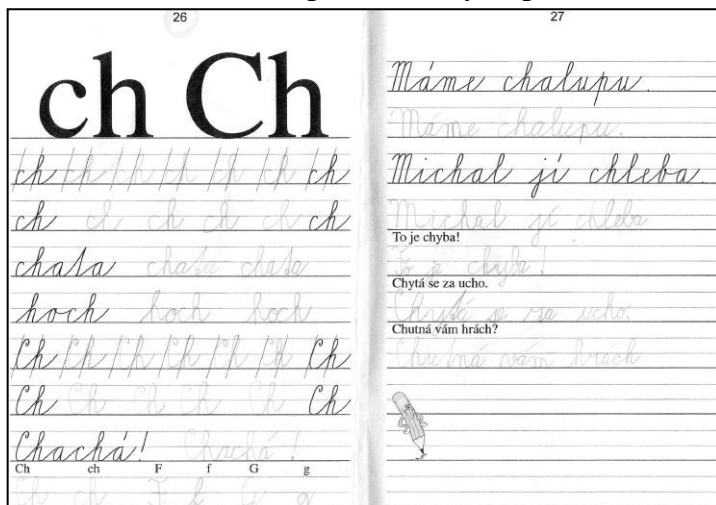 26
ch Ch
ch ch ch ch ch ch ch
ch ch ch ch ch ch
chata chata chata
hoch hoch hoch
Ch Ch Ch Ch Ch Ch Ch
Ch Ch Ch Ch Ch Ch
Chachá! Chachá!
Ch ch F f G g
Ch ch F f G g
27
Máme chalupu.
Máme chalupu.
Michal jí chleba.
Michal jí chleba
To je chyba!
To je chyba!
Chytá se za ucho.
Chytá se za ucho.
Chutná vám hrách?
Chutná vám hrách